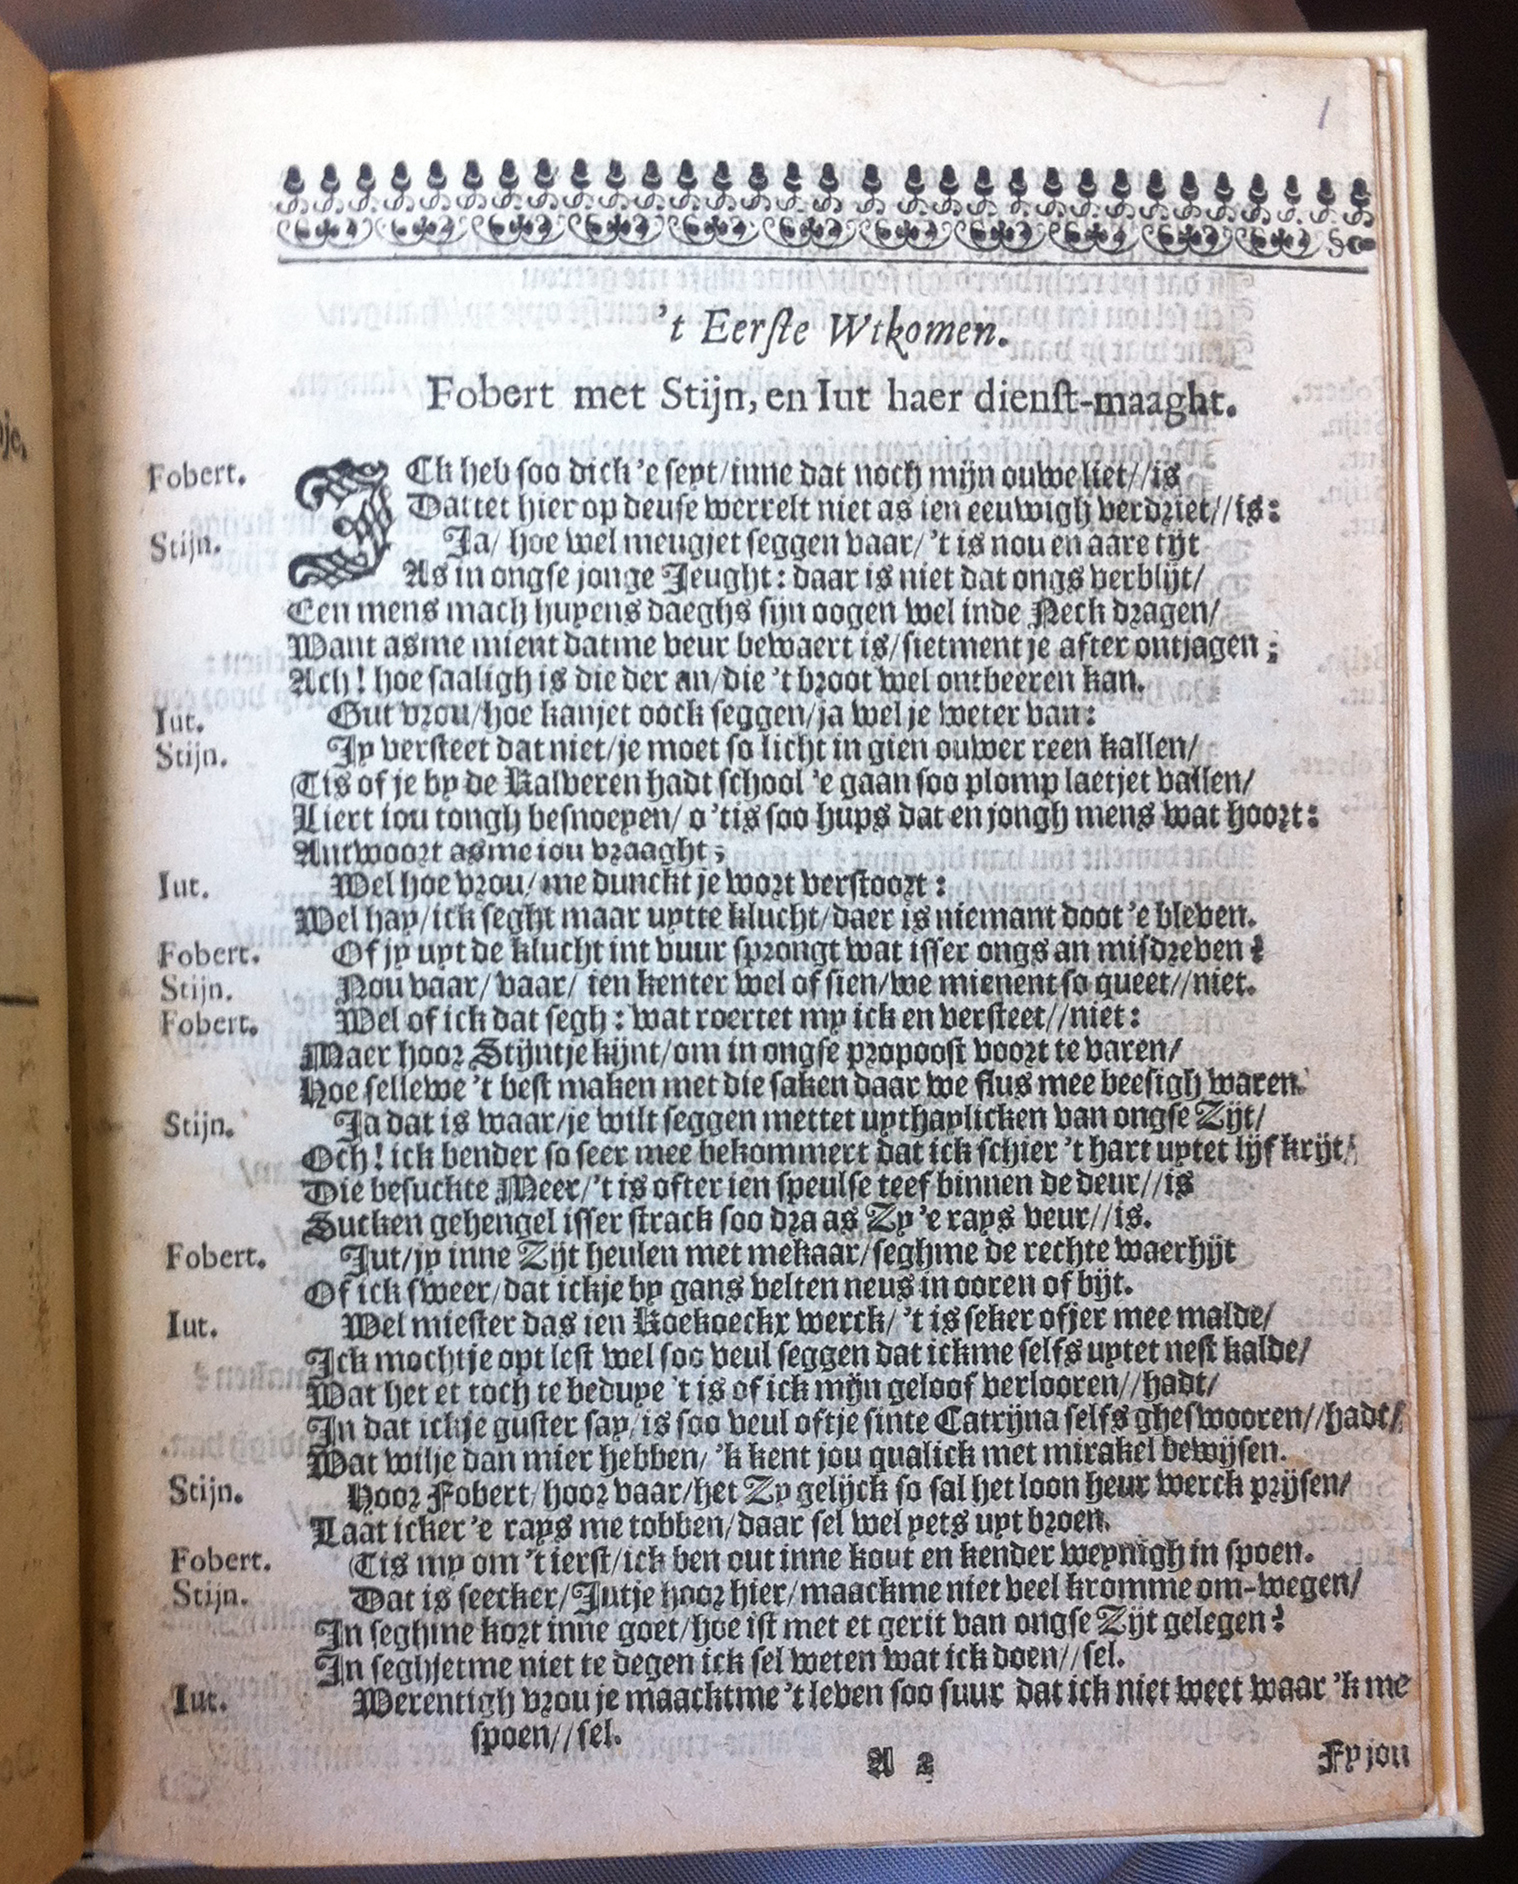 1
't Eerste Wtkomen.
Fobert met Stijn, en Iut haer dienst-maaght.
Fobert. ICk heb soo dick 'e seyt/inne dat noch mijn ouwe liet//is
Dattet hier op deuse werrelt niet as ien eeuwigh verdriet//is:
Stijn. Ja/ hoe wel meugjet seggen vaar/ 't is nou en aare tijt
As in ongse jonge Jeught: daar is niet dat ongs verblijt/
Een mens mach huyens daeghs sijn oogen wel inde Neck dragen/
Want asme mient datme veur bewaert is/sietment je after ontjagen;
Ach! hoe saaligh is die der an/die 't broot wel ontbeeren kan.
Iut. Gut vrou/hoe kanjet oock seggen/ja wel je weter van:
Stijn. Jy versteet dat niet/je moet so licht in gien ouwer reen kallen/
Tis of je by de Kalveren hadt school 'e gaan soo plomp laetjet vallen/
Liert iou tongh besnoeyen/ o 'tis soo hups dat en jongh mens wat hoort:
Antwoort asme iou vraaght;
Iut. Wel hoe vrou/ me dunckt je wort verstoort:
Wel hay/ick seght maar uytte klucht/daer is niemant doot 'e bleven.
Fobert. Of jy uyt de klucht int vuur sprongt wat isser ongs an misdreven?
Stijn. Nou vaar/ vaar/ ien kenter wel of sien/we mienent so queet//niet.
Fobert. Wel of ick dat segh: wat roertet my ick en versteet//niet:
Maer hoor Stijntje kijnt/om in ongse propoost voort te varen/
Hoe sellewe 't best maken met die saken daar we flus mee beesigh waren.
Stijn. Ja dat is waar/je wilt seggen mettet uythaylicken van ongse Zijt/
Och! ick bender so seer mee bekommert dat ick schier 't hart uytet lijf krijt/
Die besuckte Meer/'t is ofter ien speulse teef binnen de deur//is
Sucken gehengel isser strack soo dra as Zy 'e rays veur//is.
Fobert. Jut/jy inne Zijt heulen met mekaar/seghme de rechte waerhijt
Of ick sweer/dat ickje by gans velten neus in ooren of bijt.
Iut. Wel miester das ien Koekoeckx werck/ 't is seker ofjer mee malde/
Ick mochtje opt lest wel soo veul seggen dat ickme selfs uytet nest kalde/
Wat het et toch te beduye 't is of ick mijn geloof verlooren//hadt/
In dat ickje guster say/is soo veul oftje sinte Catrijna selfs gheswooren//hadt/
Wat wilje dan mier hebben/ 'k kent jou qualick met mirakel bewijsen.
Stijn. Hoor Fobert/hoor vaar/het Zy gelijck so sal het loon heur werck prijsen/
Laat icker 'e rays me tobben/daar sel wel yets uyt broen.
Fobert. Tis my om 't ierst/ick ben out inne kout en kender weynigh in spoen.
Stijn. Dat is seecker/Jutje hoor hier/maackme niet veel kromme om-wegen/
In seghme kort inne goet/hoe ist met et gerit van ongse Zijt gelegen?
In seghjetme niet te degen ick sel weten wat ick doen//sel.
Iut. Werentigh vrou je maacktme 't leven soo suur dat ick niet weet waar 'k me
spoen//sel.
A 2
Fy jou